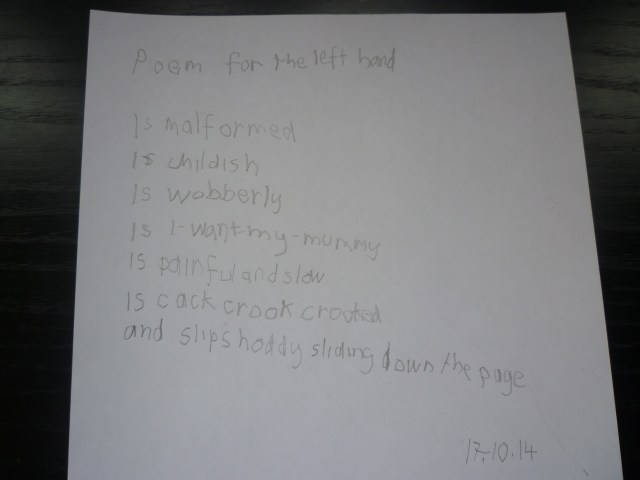 Poem for the left hand
Is malformed
Is childish
Is wobberly
Is I-want-my-mummy
Is painful and slow
Is cack crook crooked
and slipshoddy sliding down the page
17.10.14